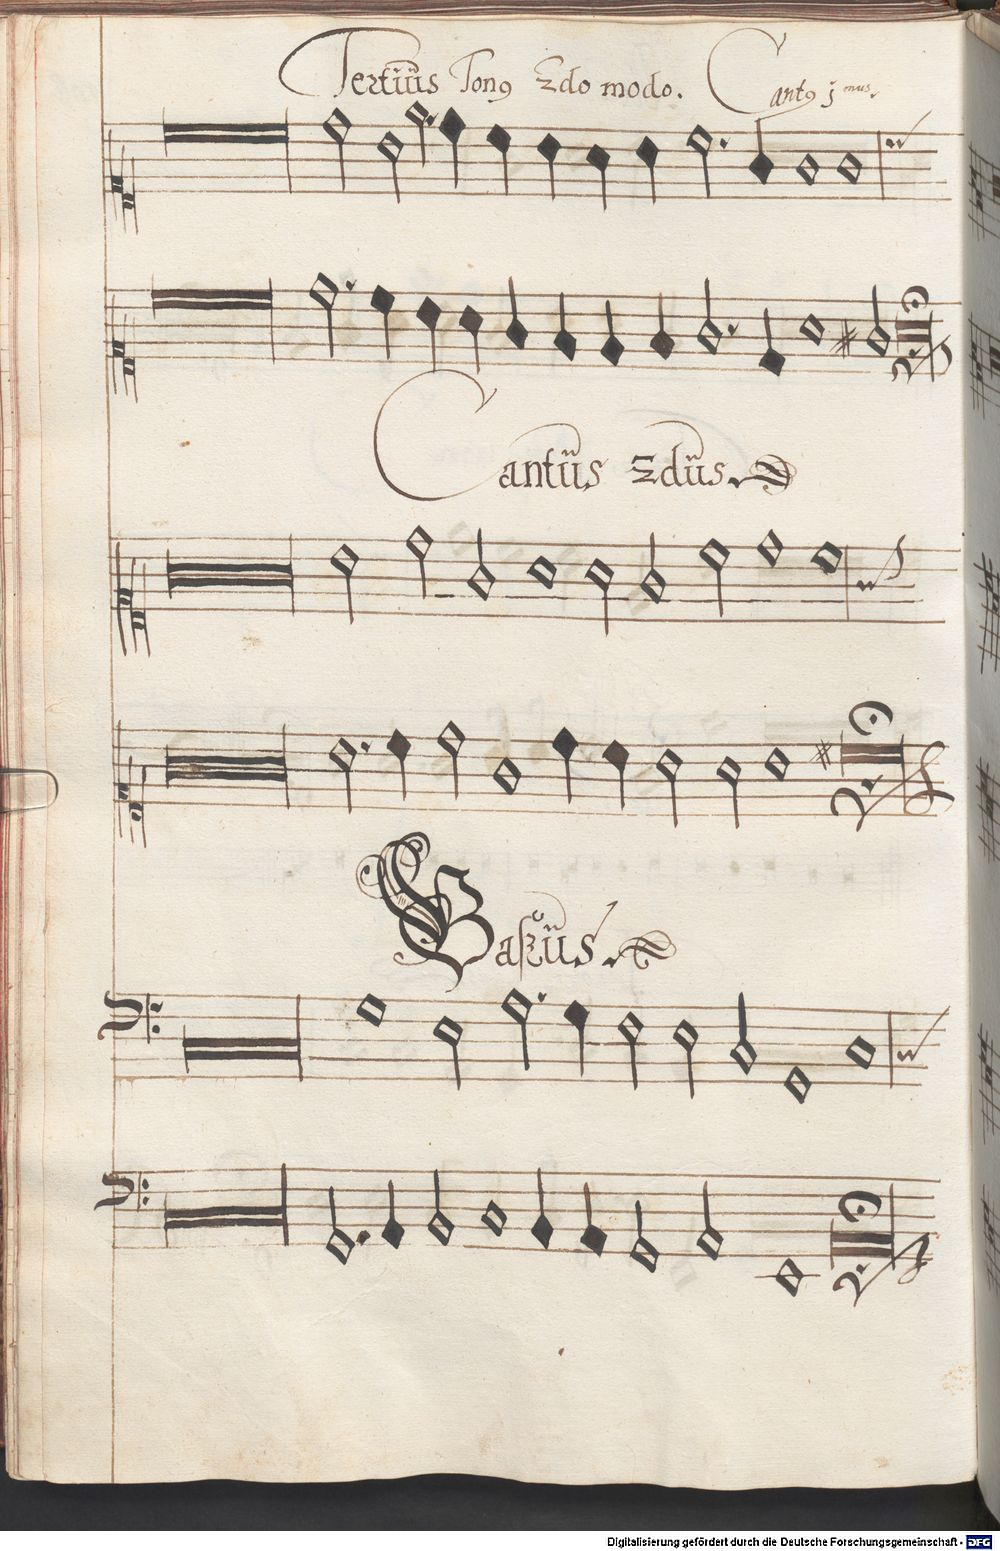 Tertiüs Tonꝰ 2do modo. Cantꝰ jmus.
Cantüs 2düs.
Baßüs.
Digitalisierung gefördert durch die Deutsche Forschungsgemeinschaft - DFG